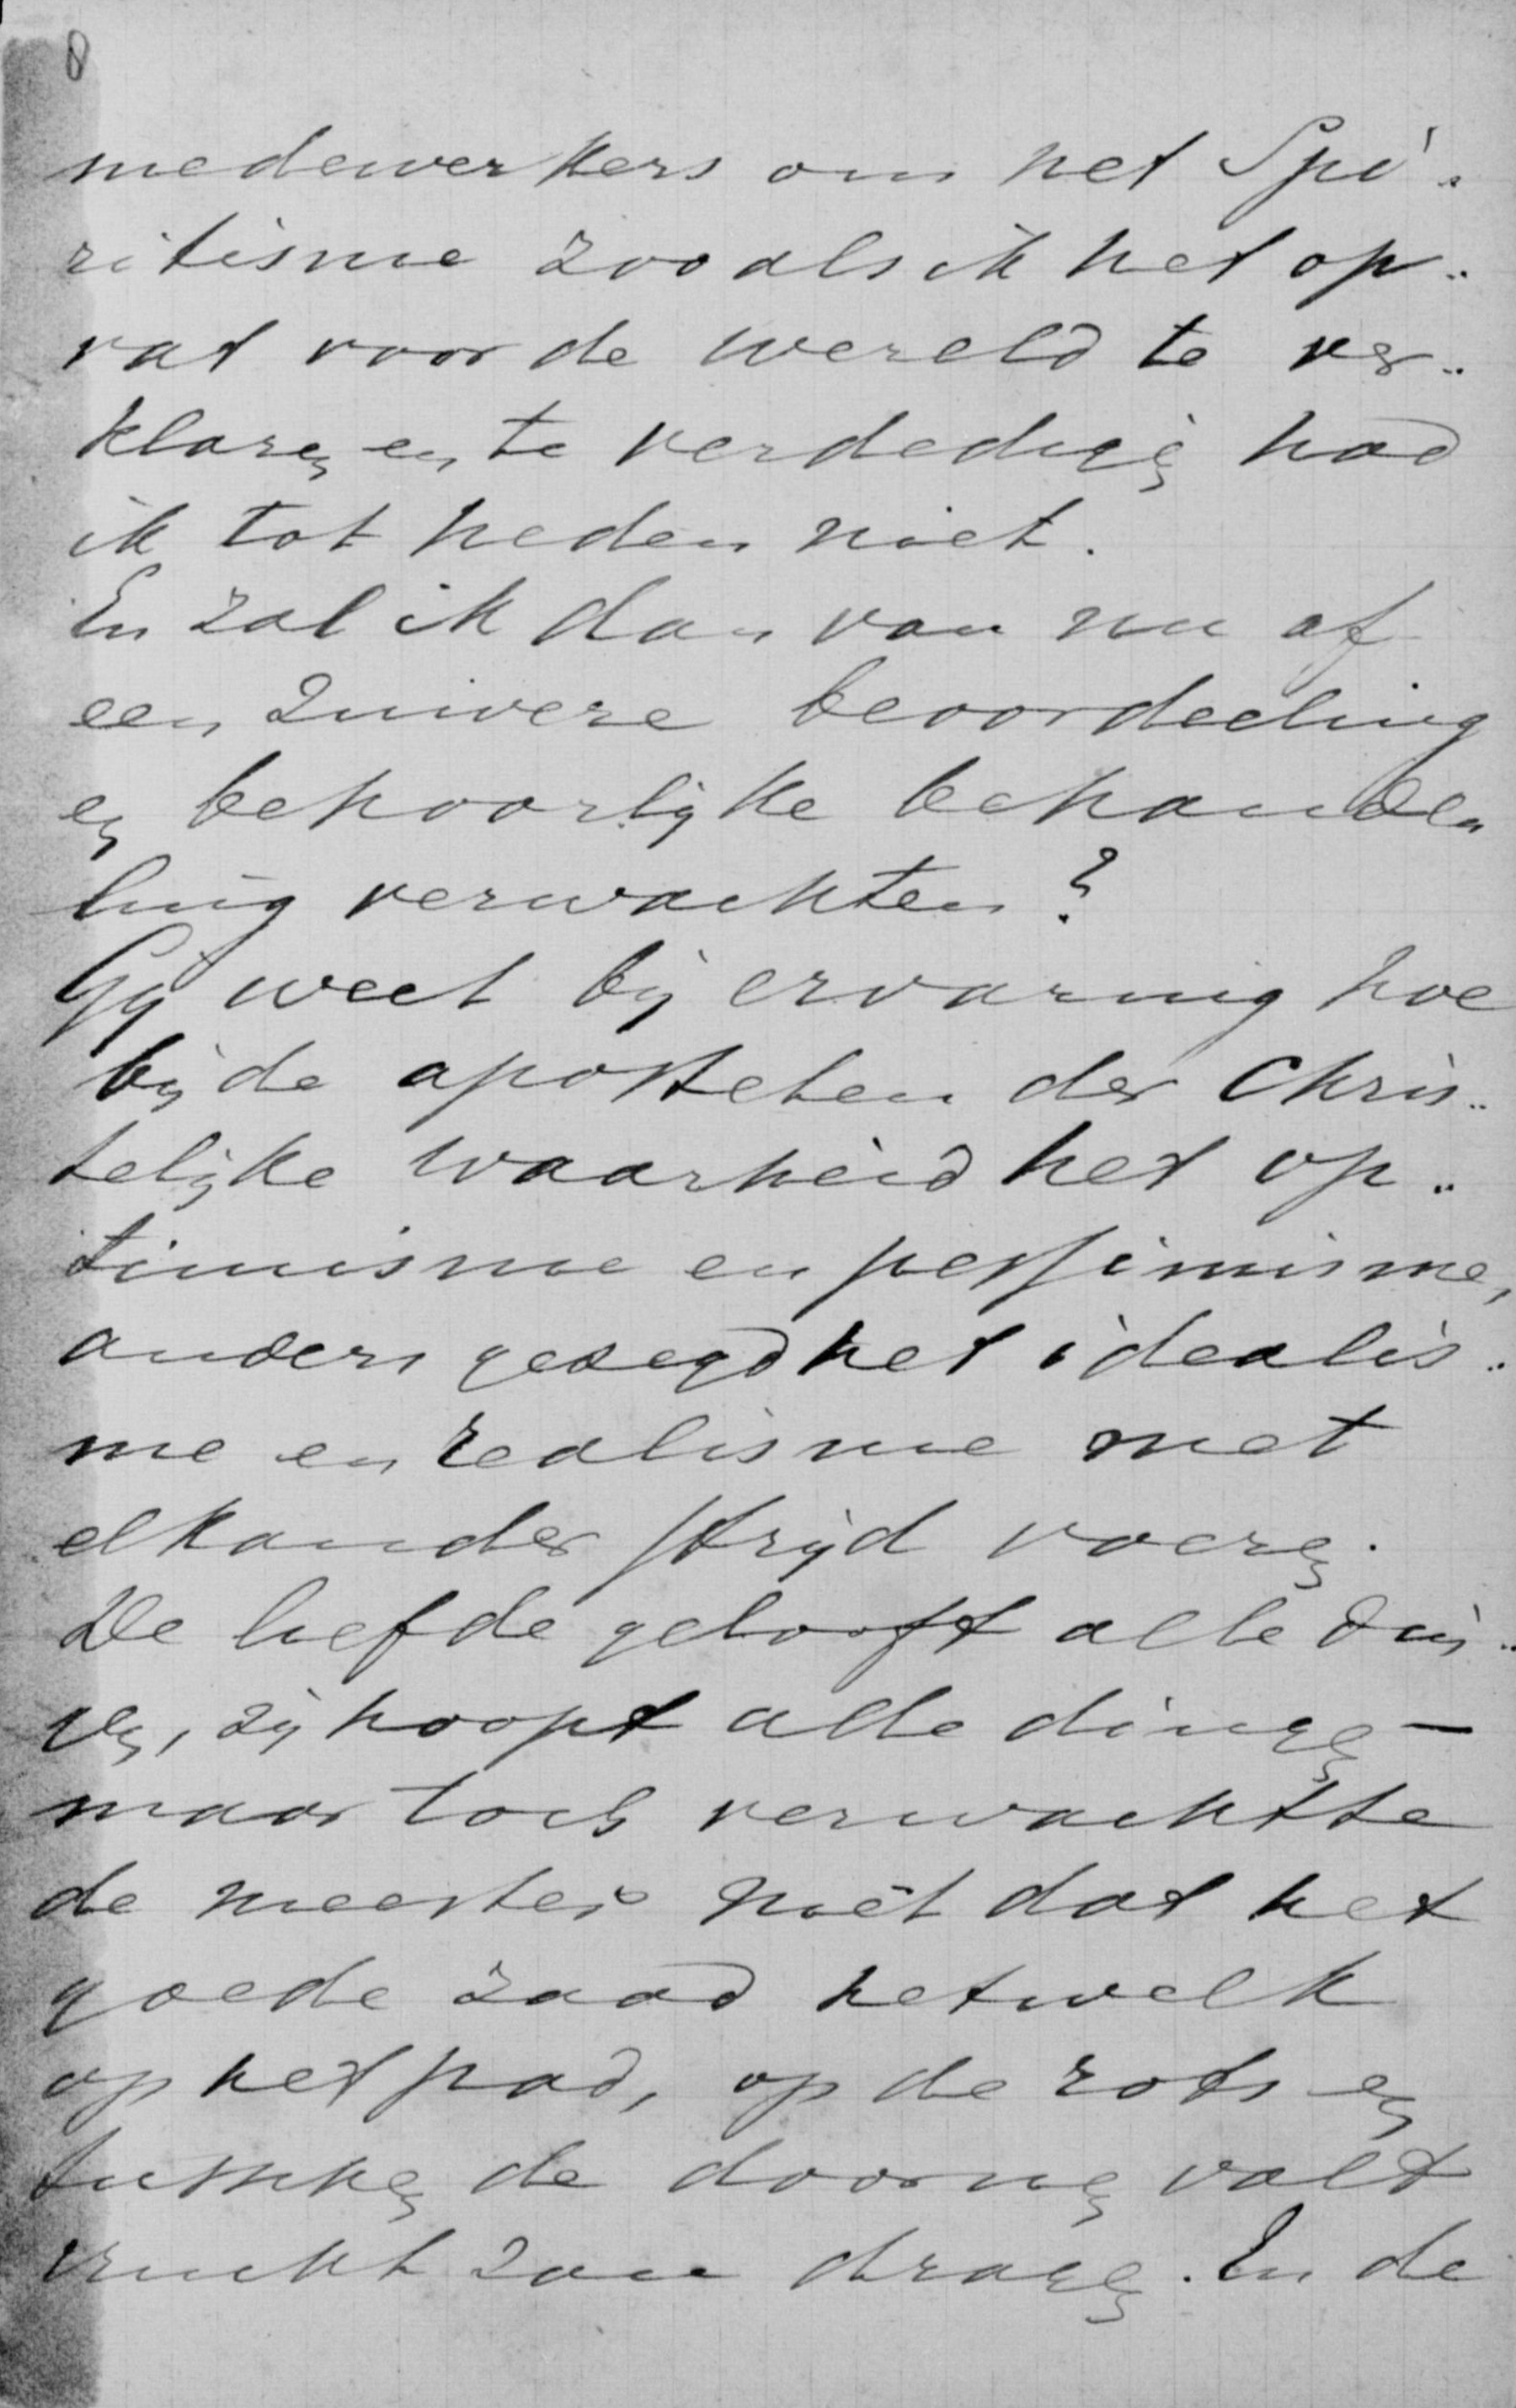 8
medewerkers om het Spi„
ritisme zooals ik het op„
vat voor de wereld te ver„
klaren en te verdedigen had
ik tot heden niet.
En zal ik dan van nu af
een zuivere beoordeeling
en behoorlijke behande„
ling verwachten?
Gij weet bij ervaring hoe
bij de apostelen der Chris„
telijke waarheid het op„
timisme en pessimisme,
anders gezegd het idealis„
me en realisme met
elkander strijd voeren.
De liefde gelooft alle din„
gen, zij hoopt alle dingen —
maar toch verwachtte
de meester niet dat het
goede zaad hetwelk
op het pad, op de rots en
tusschen de doornen valt
vrucht zou dragen. En de